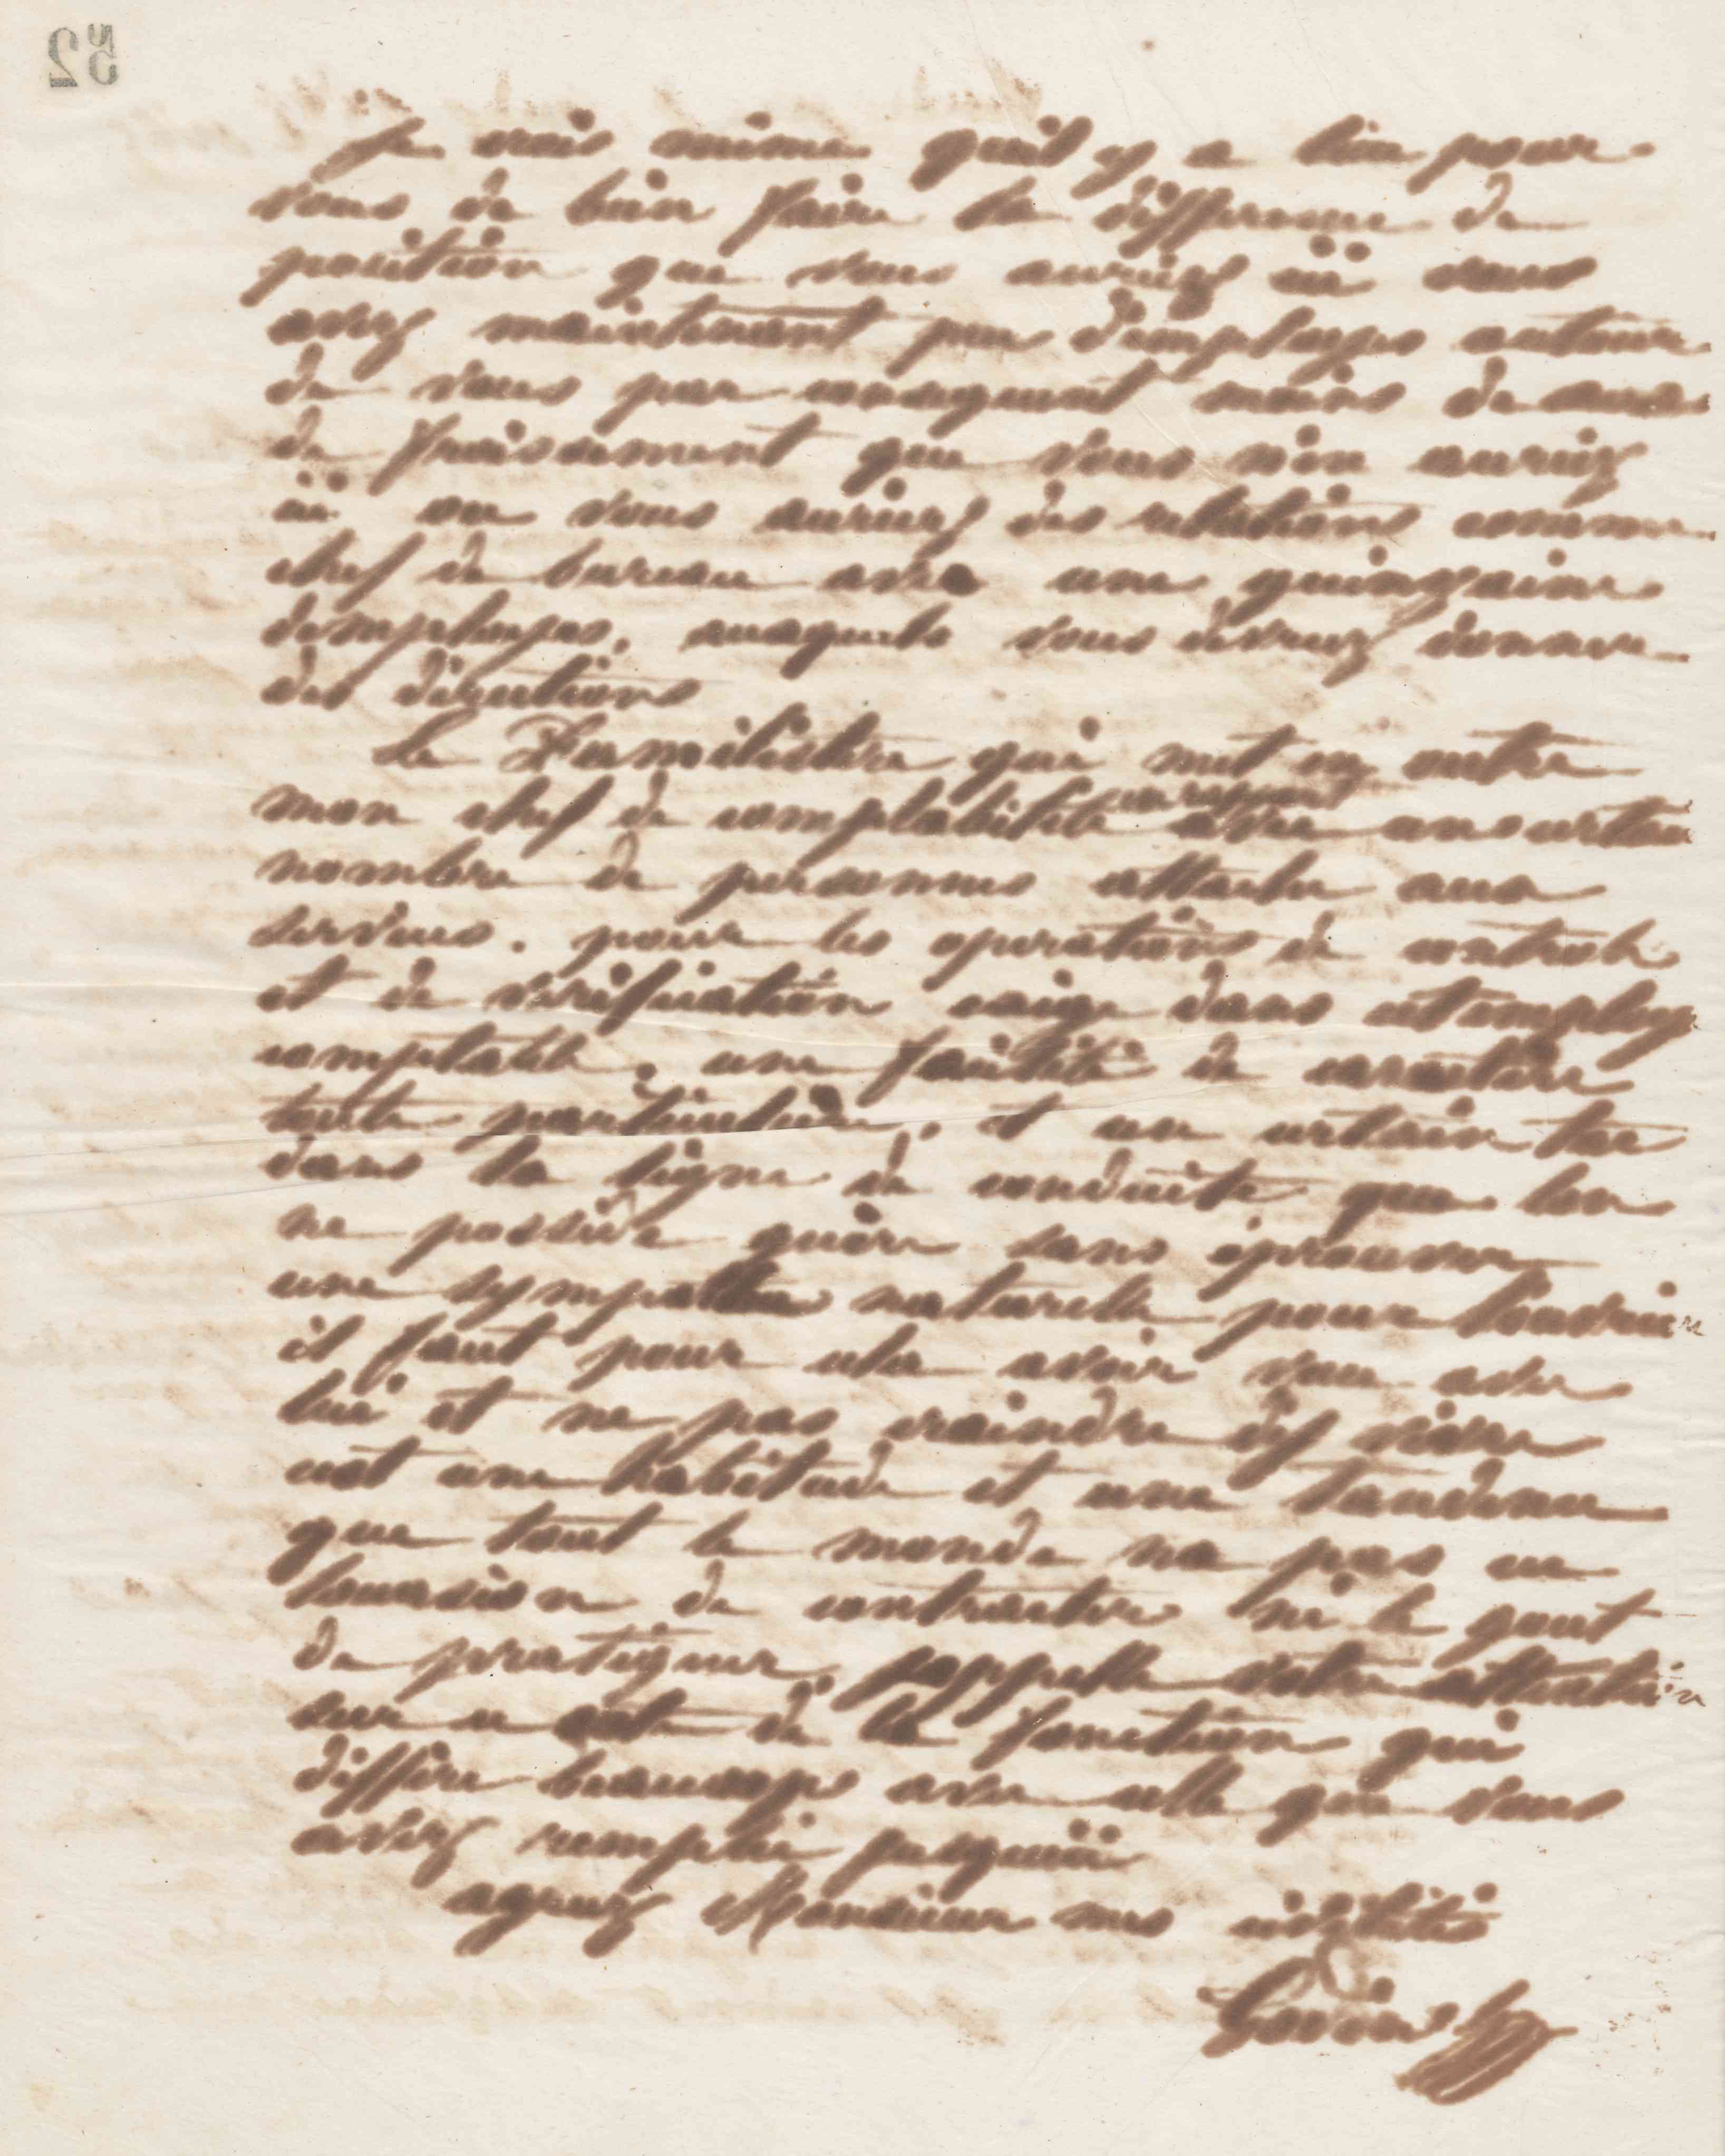 52
Je vais même qu'il y a lieu pour
vous de bien faire la difference de
position que vous auriez ici vous
avez maintenant peu d'employes autour
de vous par consequent moins de causes
de froissement que vous n'en auriez
ici ou vous auriez des relations comme
chef de bureau avec une quinzaine
demployes, auxquels vous devrez donner
des directions
Le Familistère qui met en outre
mon chef de comptabilité en rapport avec un certain
nombre de personnes attachee aux
services. pour les operations de controle
et de verification exige dans cet employe
comptable, une facilité de caractère
toute particulière, et un certain tac
dans la ligne de conduite que lon
ne possède guère sans éprouver
une sympathie naturelle pour louvrier
il faut pour cela avoir vecu avec
lui et ne pas craindre d'y vivre
cest une habitude et une tendence
que tout le monde na pas eu
loccasion de contracter ni le gout
de pratiquer, jappelle votre attention
sur ce coté de la fonction qui
diffère beaucoup avec celle que vous
avez remplie jusquici
agreez Monsieur mes civilités
Godin